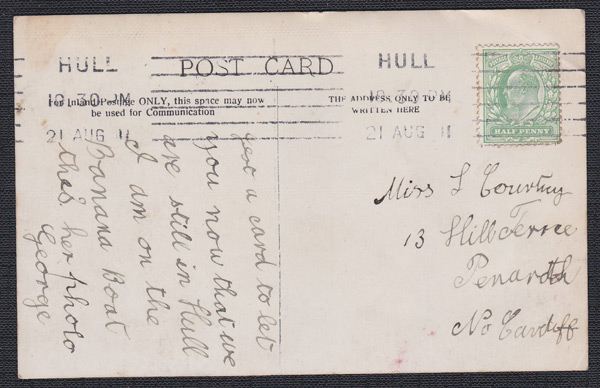 HULL
10 30 PM
21 AUG 11
POST CARD
HULL
10 30 PM
21 AUG 11
For Inland Postage ONLY, this space may now
be used for Communication
THE ADDRESS ONLY TO BE
WRITTEN HERE
HALF PENNY
Just a card to let
you now that we
are still in Hull
I am on the
Banana Boat
this, her photo
George
Miss L Courtny
13 Hill Terrce
Penarth
No Cardiff